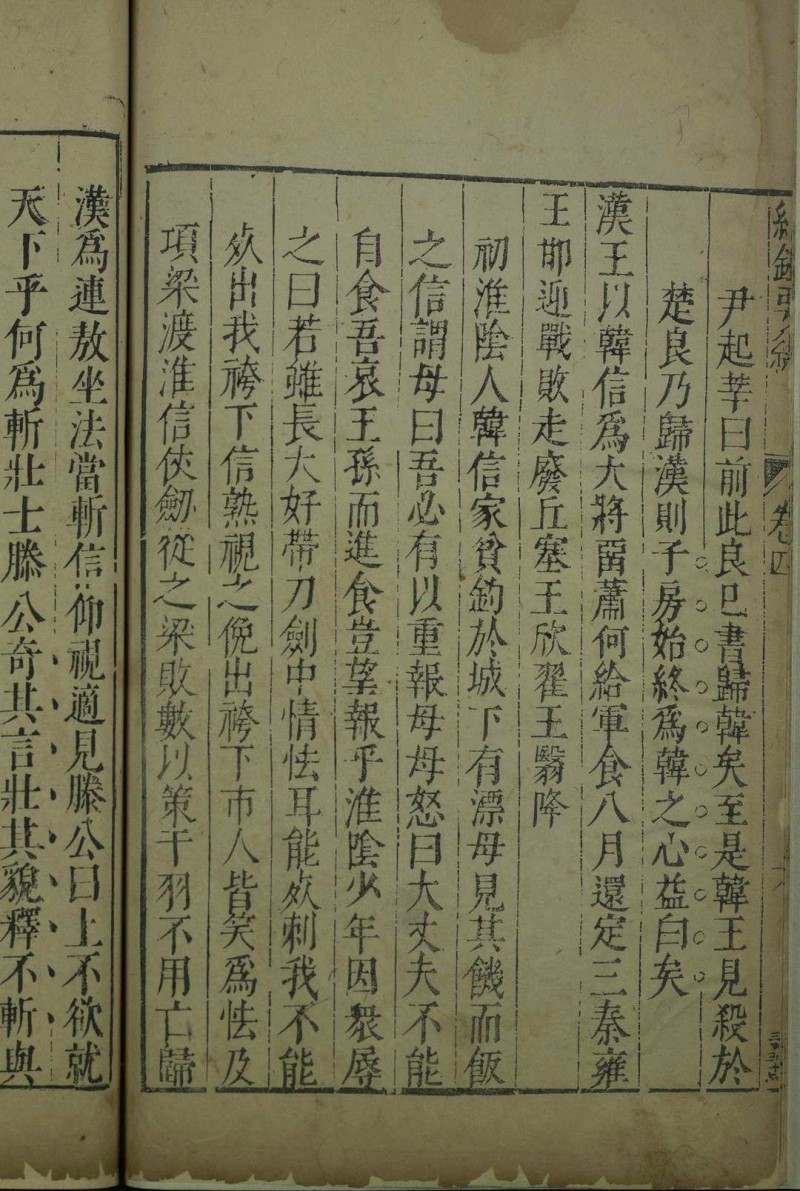 卷四
尹起莘曰前此良已書歸韓矣至是韓王見殺於
楚良乃歸漢則子房始終爲韓之心益白矣
漢王以韓信爲大將畱蕭何給軍食八月還定三秦雍
王邯迎戰敗走廢丘塞王欣翟王翳降
初淮陰人韓信家貧釣於城下有漂母見其饑而飯
之信謂母曰吾必有以重報母母怒曰大丈夫不能
自食吾哀王孫而進食豈望報乎淮陰少年因衆辱
之曰若雖長大好帶刀劍中情怯耳能死刺我不能
死出我袴下信熟視之俛出袴下市人皆笑爲怯及
項梁渡淮信仗劒從之梁敗數以策干羽不用亡歸
漢爲連敖坐法當斬信仰視適見滕公曰上不欲就
天下乎何爲斬壯士滕公奇其言壯其貌釋不斬與